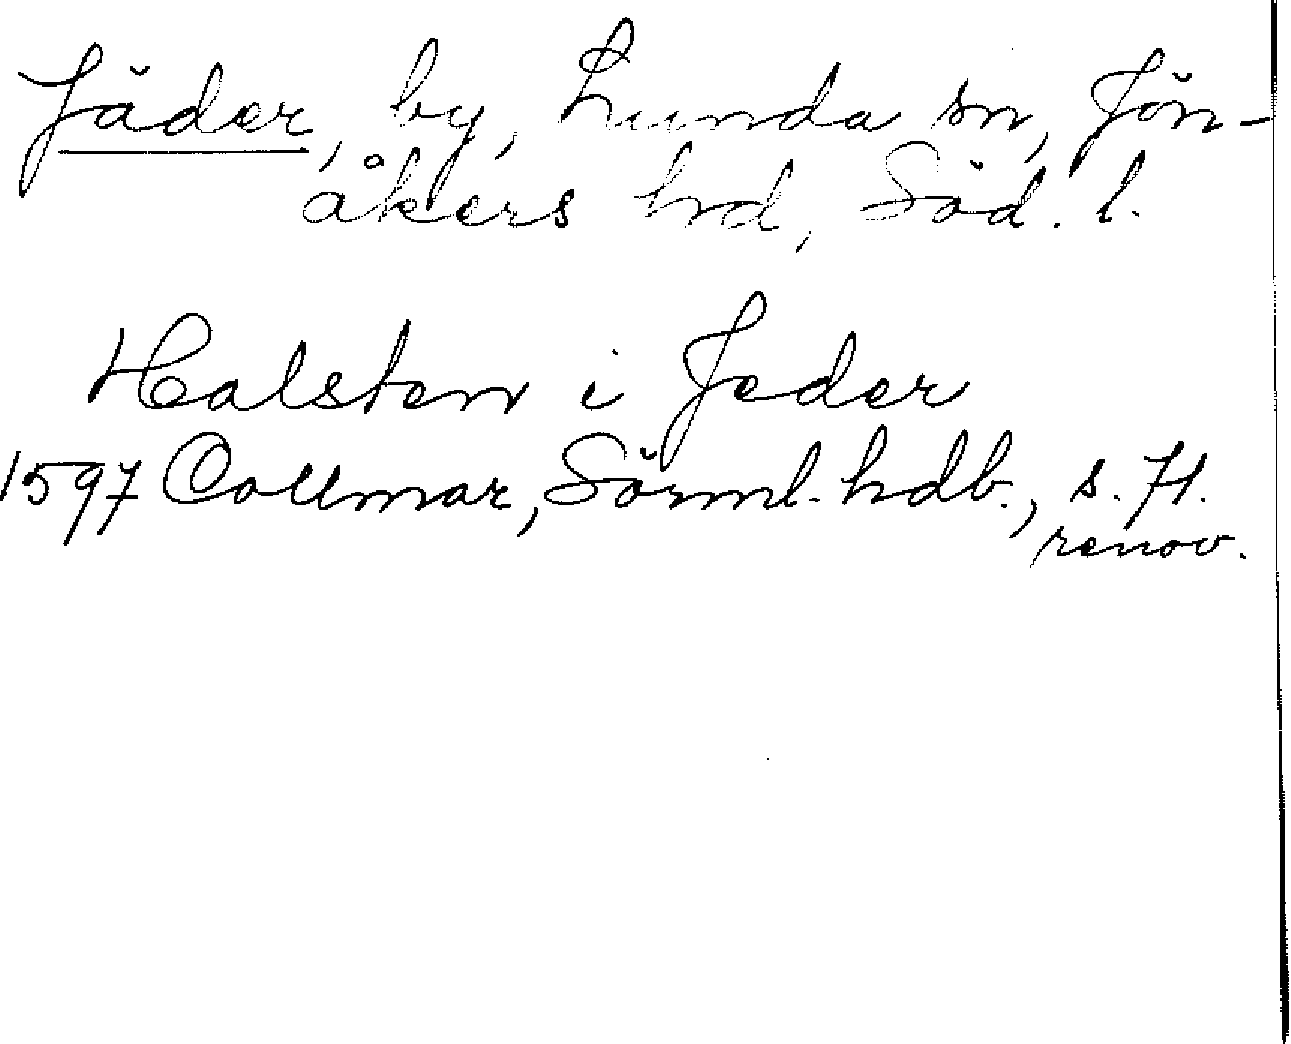 Jäder, by, Lunda sn, Jön-
åkers hd, Söd. l.
Halsten i Jeder
1597 Collmar, Sörml. hdb., s. 71.
renov.